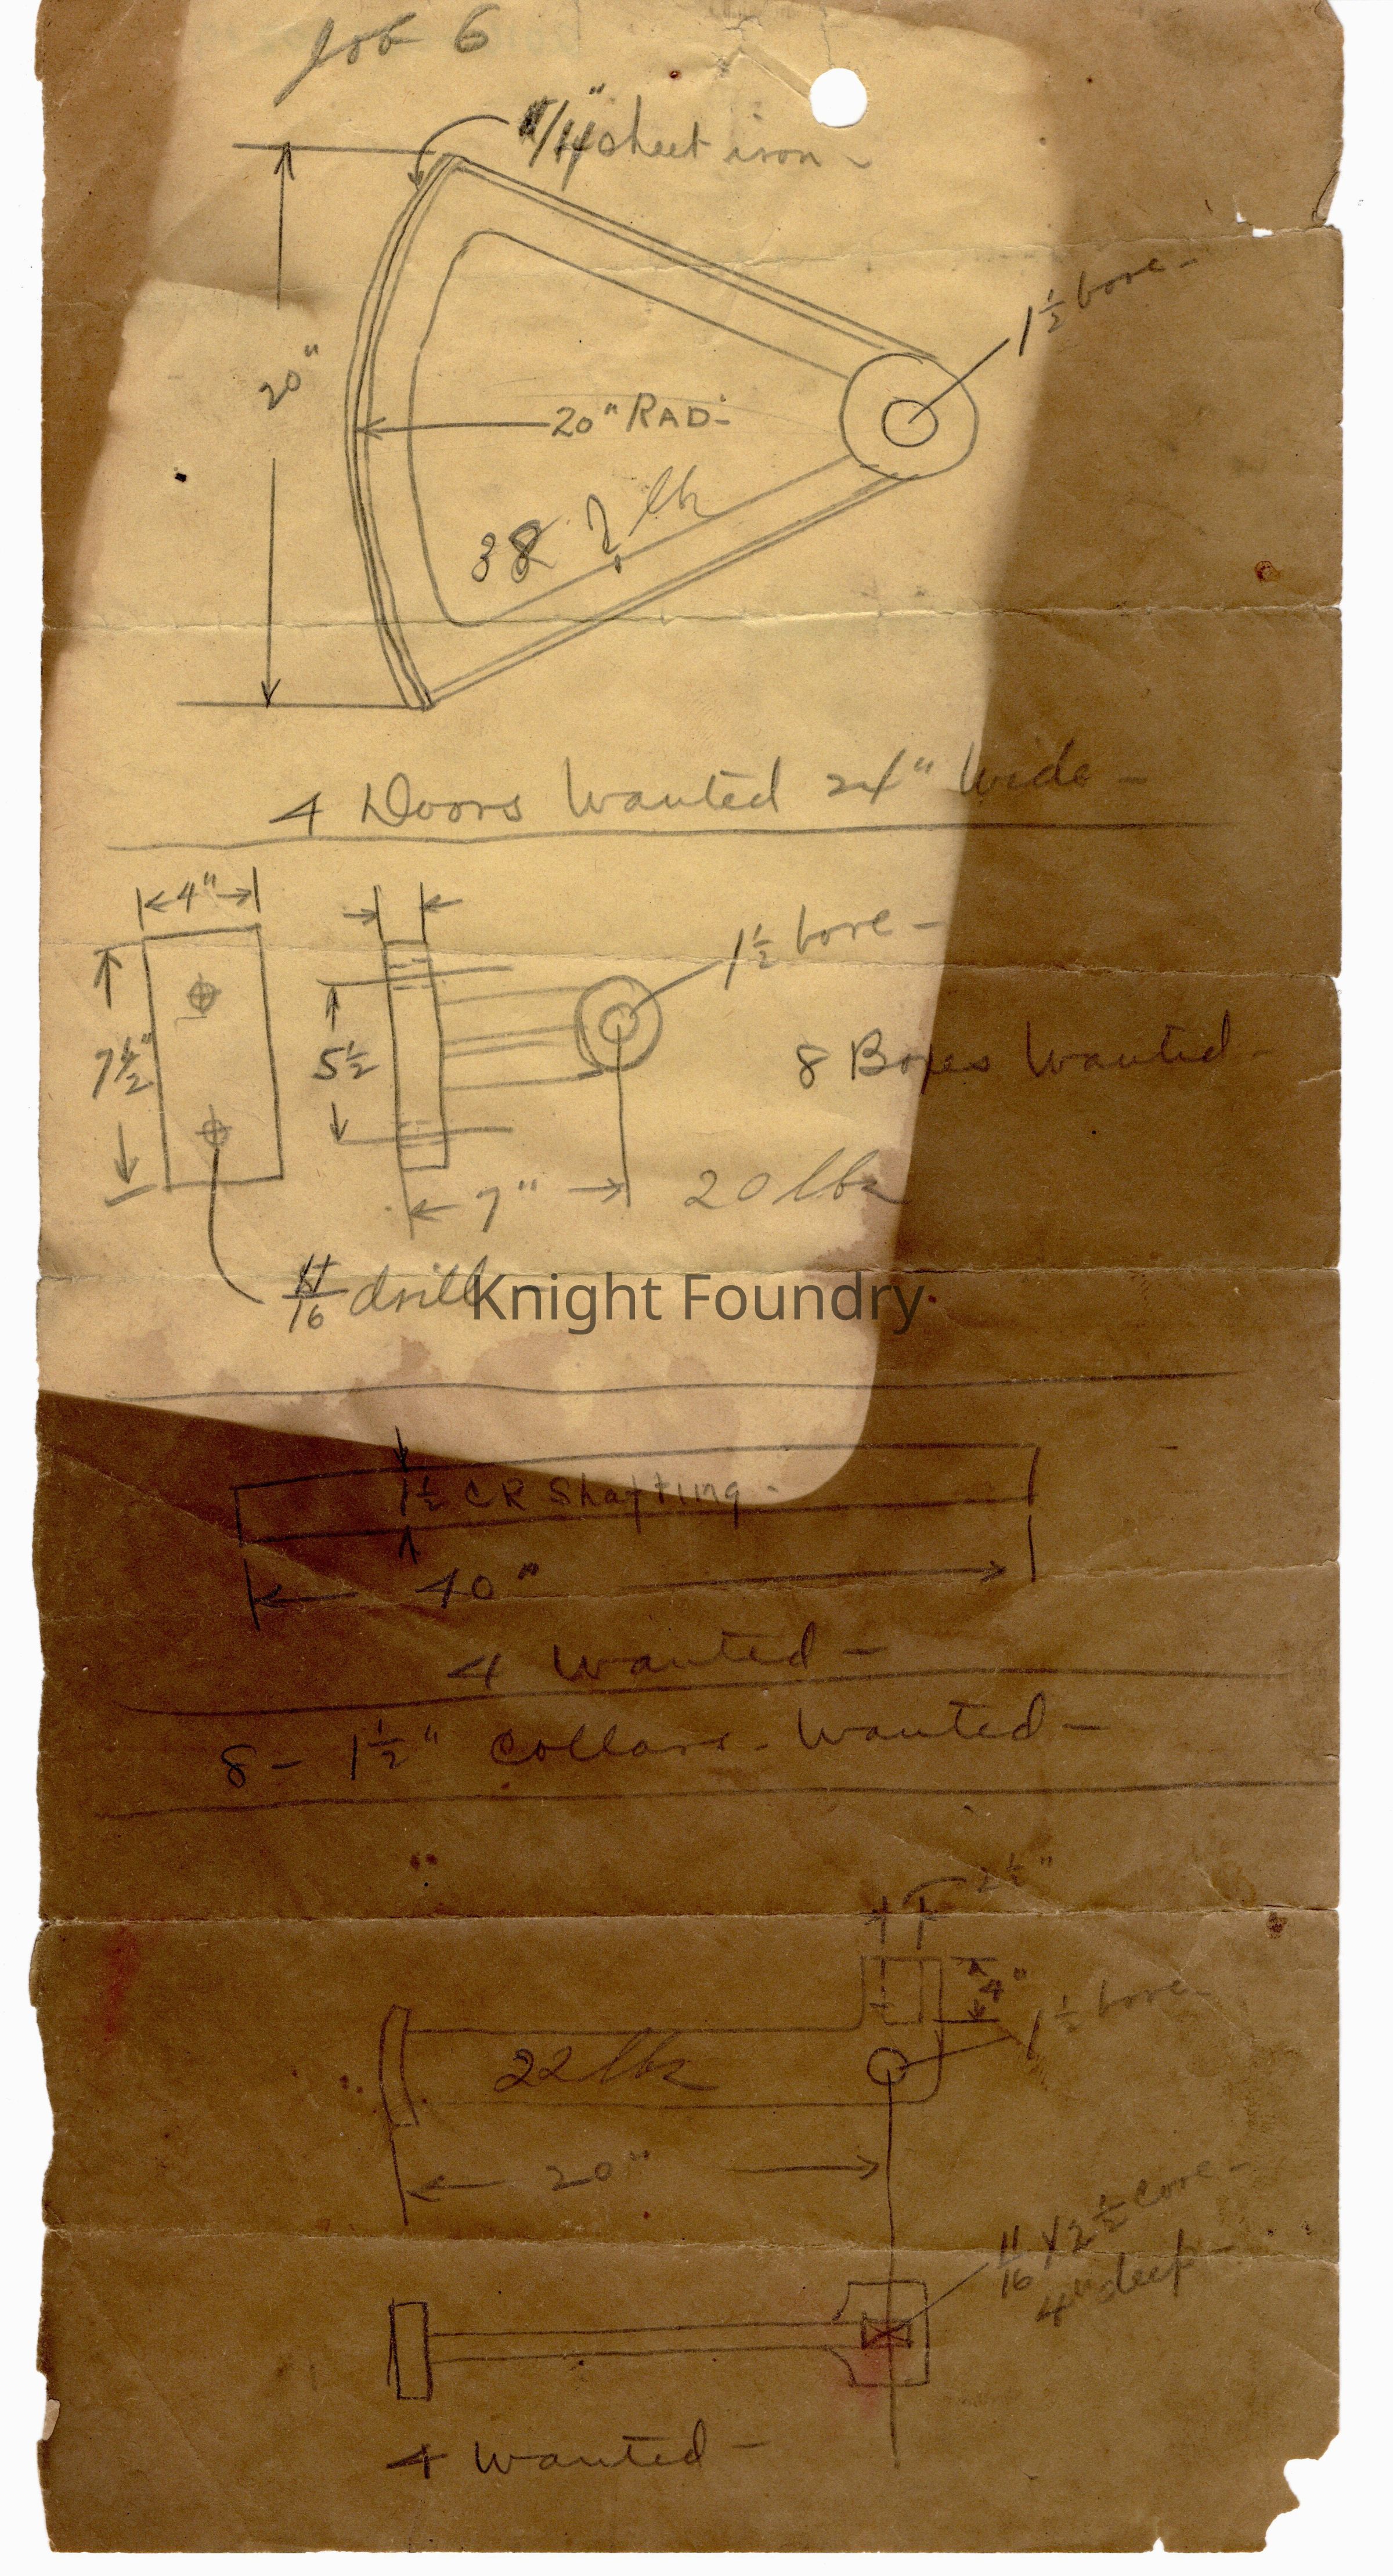 Job 6
1/4" sheet iron -
1 1/2 bore -
20"
20" RAD-
38 ? lb
4 Doors Wanted 24" Wide -
4"
1 1/2 bore -
7 1/2"
5 1/2
8 Boxes Wanted -
7"
20 lbs
11/16 drill
Knight Foundry
1 1/2 CR Shafting -
40"
4 Wanted -
8 - 1 1/2" Collars - Wanted -
2 1/2"
4"
1 1/2 bore -
22 lbs
20"
11/16 x 2 1/2 Core -
4" deep -
4 Wanted -